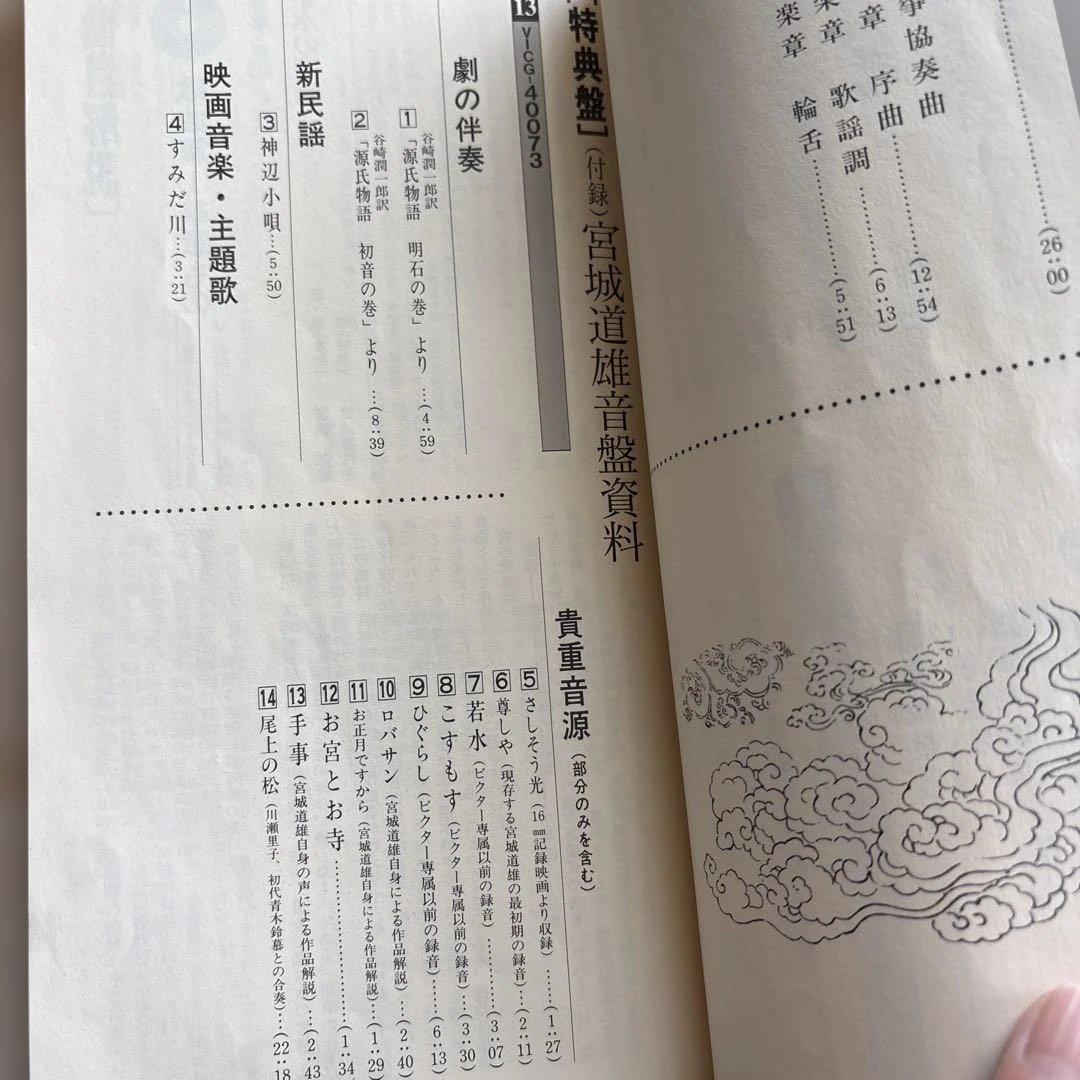 (26:00)
事協奏曲
章 序曲………(12:54)
章 歌謡調…(6:13)
楽章 輪舌………(5:51)
特典盤](付録)宮城道雄音盤資料
13 VICG-40073
劇の伴奏
谷崎潤一郎訳
1「源氏物語 明石の巻」より…(4:59)
谷崎潤一郎訳
2「源氏物語 初音の巻」より…(8:39)
新民謡
3神辺小唄…(5:50)
映画音楽・主題歌
4すみだ川…(3:21)
貴重音源(部分のみを含む)
5さしそう光(16㎜記録映画より収録)……(1:27)
6尊しや(現存する宮城道雄の最初期の録音)…(2:11)
7若水(ビクター専属以前の録音)………(3:07)
8こすもす(ビクター専属以前の録音)…(3:30)
9ひぐらし(ビクター専属以前の録音)…(6:13)
10ロバサン(宮城道雄自身による作品解説)…(2:40)
11お正月ですから(宮城道雄自身による作品解説)…(1:29)
12お宮とお寺………………(1:34)
13手事(宮城道雄自身の声による作品解説)…(2:43
14尾上の松(川瀬里子、初代青木鈴慕との合奏)…(22:18